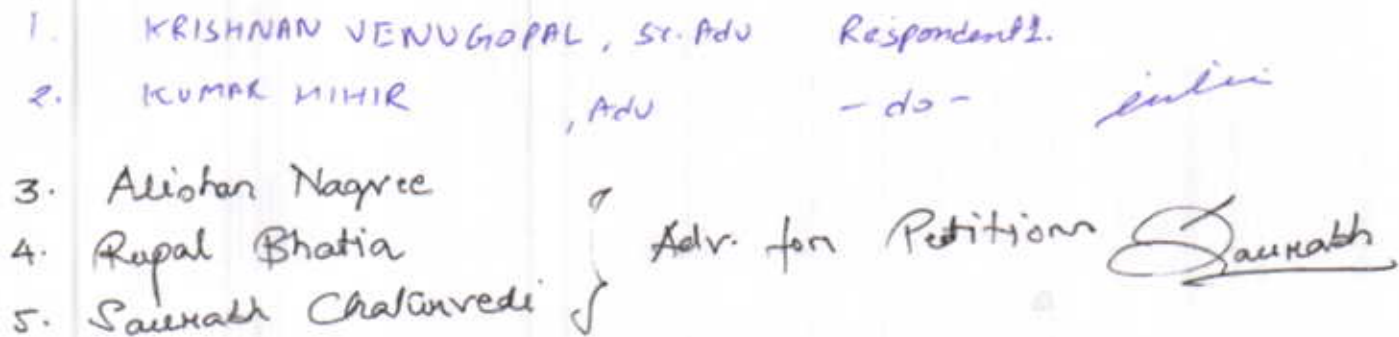 1. KRISHNAN VENUGOPAL, Sr. Adv Respondent 1.
2. KUMAR MIHIR , Adv - do -
3. Alishan Nagree
4. Rupal Bhatia } Adv. for Petitioner Saurabh
5. Saurabh Chaturvedi